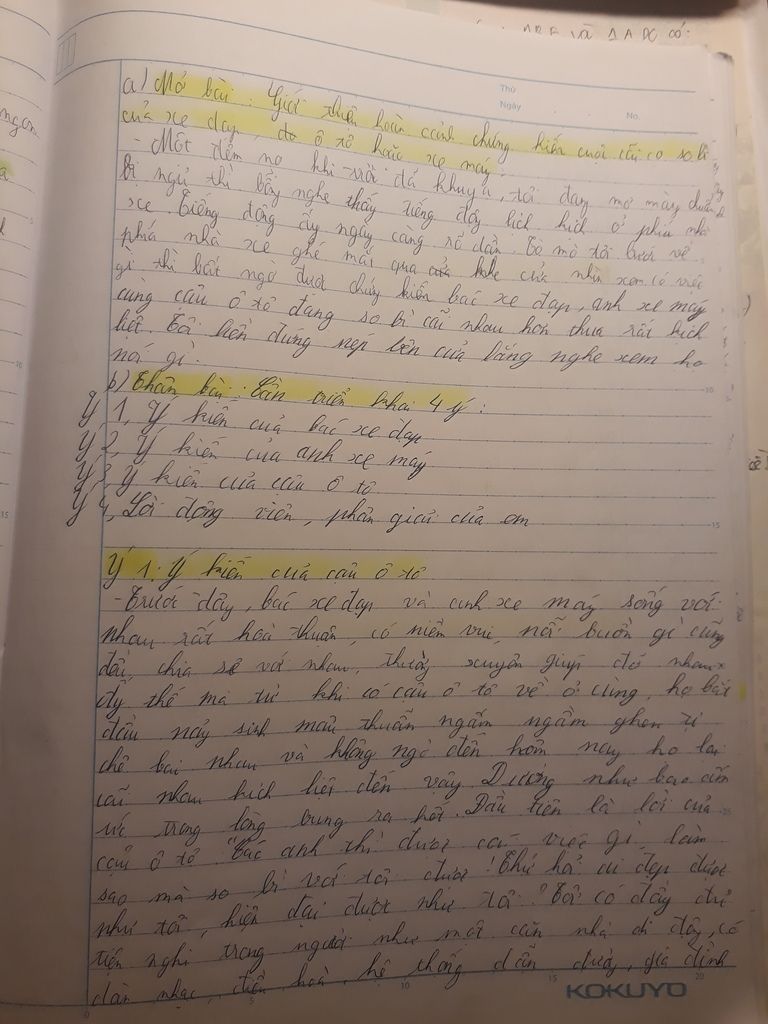 Thứ
Ngày No.
a) Mở bài: Giới thiệu hoàn cảnh chứng kiến cuộc cãi cọ so bì
của xe đạp, ô tô hoặc xe máy
- Một đêm nọ khi trời đã khuya, tôi đang mơ màng chuẩn
bị ngủ thì bỗng nghe thấy tiếng động lịch kịch ở phía nhà
xe. Tiếng động ấy ngày càng rõ dần. Tò mò tôi bước về
phía nhà xe ghé mắt qua khe cửa nhìn xem có việc
gì thì bất ngờ được chứng kiến bác xe đạp, anh xe máy
cùng cậu ô tô đang so bì cãi nhau hơn thua rất kịch
liệt. Tôi liền đứng nép bên cửa lắng nghe xem họ
nói gì.
b) Thân bài: Cần triển khai 4 ý:
Ý 1, Ý kiến của bác xe đạp
Ý 2, Ý kiến của anh xe máy
Ý 3, Ý kiến của cậu ô tô
Ý 4, Lời động viên, phân giải của em
Ý 1: Ý kiến của cậu ô tô
- Trước đây, bác xe đạp và anh xe máy sống với
nhau rất hoà thuận, có niềm vui, nỗi buồn gì cũng
đều chia sẻ với nhau, thường xuyên giúp đỡ nhau
ấy thế mà từ khi có cậu ô tô về ở cùng, họ bắt
đầu nảy sinh mâu thuẫn ngấm ngầm ghen tị
chê bai nhau và không ngờ đến hôm nay họ lại
cãi nhau kịch liệt đến vậy. Dường như bao ấm
ức trong lòng bung ra hết. Đầu tiên là lời của
cậu ô tô "Các anh thì được cái việc gì, làm
sao mà so bì với tôi được! Thử hỏi ai đẹp được
như tôi, hiện đại được như tôi? Tôi có đầy đủ
tiện nghi trong người như một căn nhà di động, có
dàn nhạc, điều hoà, hệ thống dẫn đường, gia đình
KOKUYO